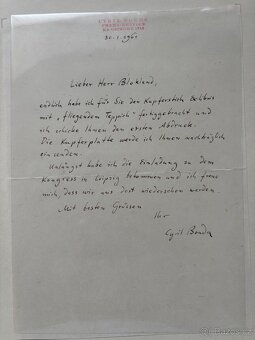 CYRIL BOUDA
30.1.1961
Lieber Herr Blokland,
endlich habe ich für Sie den Kupferstich Exlibris
mit „fliegendem Teppich“ fertiggebracht und
ich schicke Ihnen den ersten Abdruck.
Die Kupferplatte werde ich Ihnen nachträglich
einsenden.
Unlängst habe ich die Einladung zu dem
Kongress in Leipzig bekommen und ich freue
mich, dass wir uns dort wiedersehen werden.
Mit besten Grüssen
Ihr
Cyril Bouda